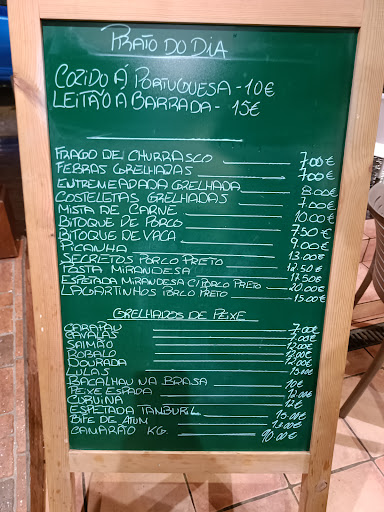 PRATO DO DIA
COZIDO Á PORTUGUESA - 10€
LEITÃO A BARRADA - 15€
FRAGO DE CHURRASCO 7.00€
FEBRAS GRELHADAS 7.00€
ENTREMEADA GRELHADA 8.00€
COSTELETAS GRELHADAS 7.00€
MISTA DE CARNE 10.00€
BITOQUE DE PORCO 7.50€
BITOQUE DE VACA 9.00€
PICANHA 13.00€
SECRETOS PORCO PRETO 12.50€
POSTA MIRANDESA 17.50€
ESPETADA MIRANDESA C/ PORCO PRETO 20.00€
LAGARTINHOS PORCO PRETO 15.00€
GRELHADOS DE PEIXE
CARAPAU 7.00€
CAVALAS 7.00€
SALMÃO 12.00€
ROBALO 12.00€
DOURADA 12.00€
LULAS 13.00€
BACALHAU NA BRASA 10€
PEIXE ESPADA 12€
CURUINA 12€
ESPETADA TAMBURIL 13.00€
BIFE DE ATUM 13.00€
CAMARÃO KG. 90.00€